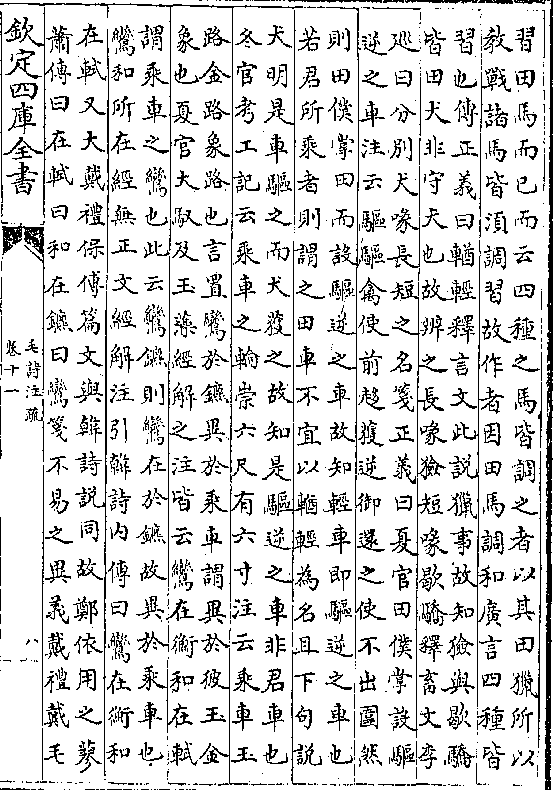 習田馬而已而云四種之馬皆調之者以其田獵所以
教戰諸馬皆須調習故作者因田馬調和廣言四種皆
習也傳正義曰輶輕釋言文此説獵事故知獫與歇驕
皆田犬非守犬也故辨之長喙獫短喙歇驕釋畜文李
廵曰分別犬喙長短之名箋正義曰夏官田僕掌設驅
逆之車注云驅驅禽使前趍獲逆御還之使不出圍然
則田僕掌田而設驅逆之車故知輕車即驅逆之車也
若君所乘者則謂之田車不宜以輶輕為名且下句説
犬明是車驅之而犬獲之故知是驅逆之車非君車也
冬官考工記云乘車之輪崇六尺有六寸注云乘車玉
路金路象路也言置鸞於鑣異於乘車謂異於彼玉金
象也夏官大馭及玉藻經解之注皆云鸞在衡和在軾
謂乘車之鸞也此云鸞鑣則鸞在於鑣故異於乘車也
鸞和所在經無正文經解注引韓詩内傳曰鸞在衡和
在軾又大戴禮保傅篇文與韓詩説同故鄭依用之蓼
蕭傳曰在軾曰和在鑣曰鸞箋不易之異義戴禮戴毛
欽定四庫全書
毛詩注疏
卷十一
八